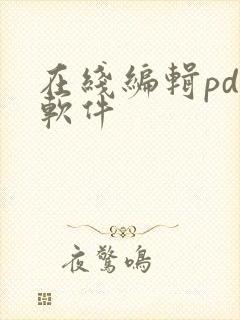 在綫編輯pd
軟件
夜驚鳴